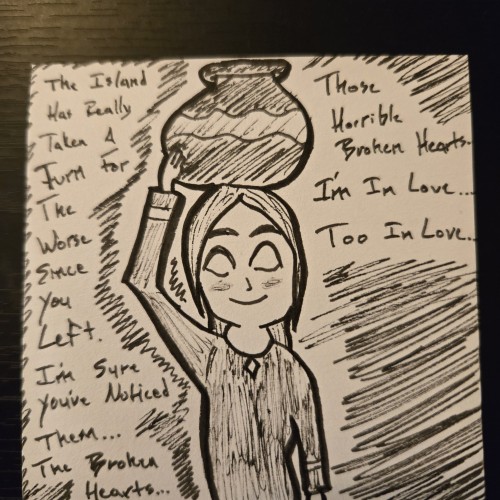 The Island
Has Really
Taken A
Turn For
The
Worse
Since
You
Left.
I'm Sure
You've Noticed
Them...
The Broken
Hearts...
Those
Horrible
Broken Hearts.
I'm In Love...
Too In Love...